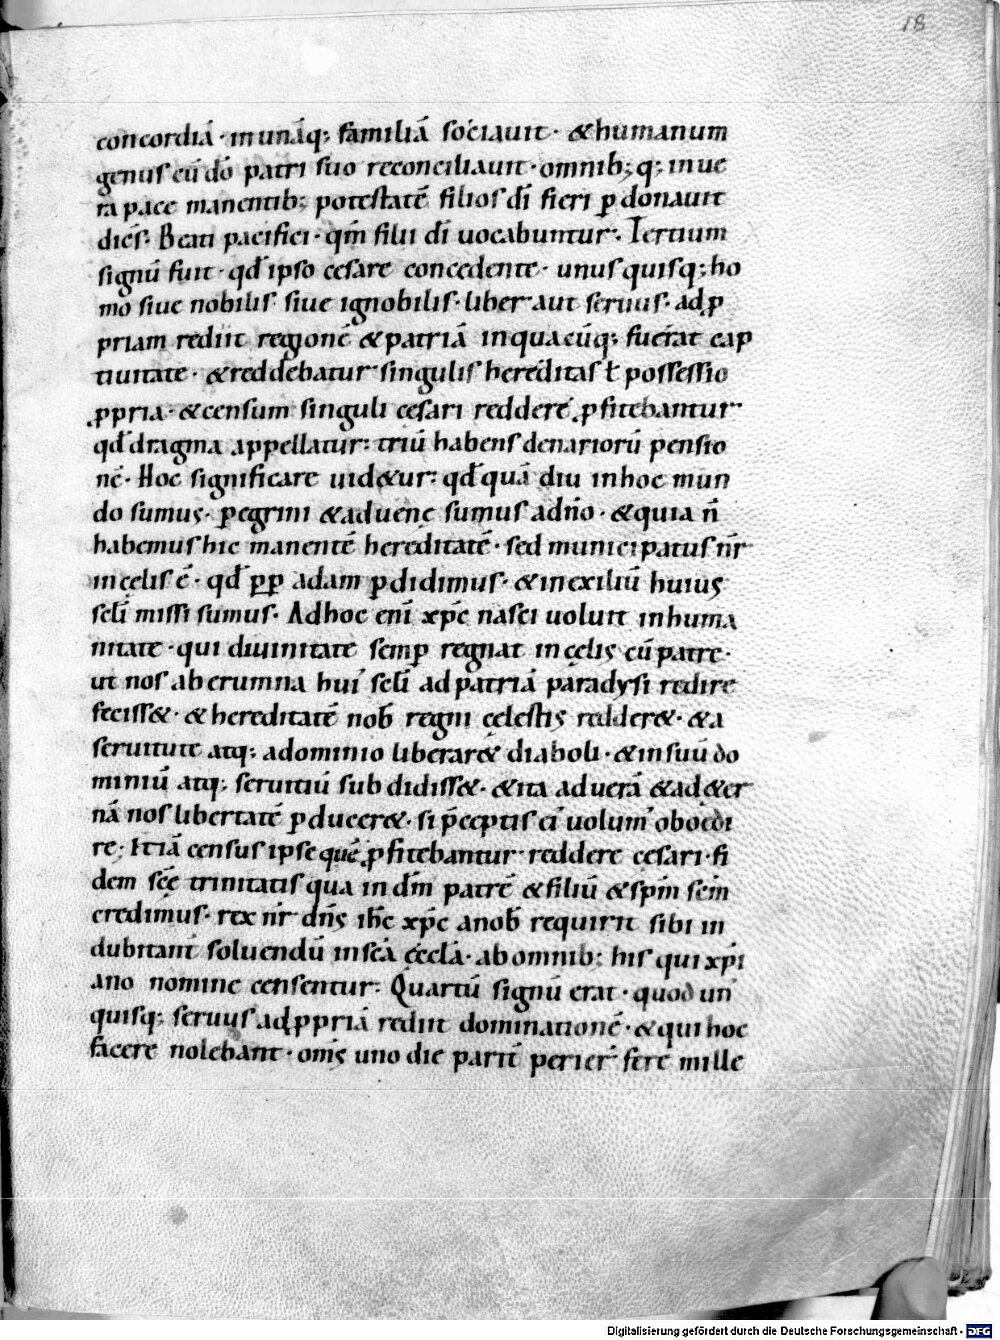 18
concordiā · in unāq; familiā sociauit · & humanum
genus cū dō patri suo reconciliauit · omnib; q; in ue
ra pace manentib; potestatē filios dī fieri p donauit
dicēs· Beati pacifici · qm̄ filii dī uocabuntur·. Tertium
signū fuit · qđ ipso cesare concedente · unus quisq; ho
mo siue nobilis siue ignobilis · liber aut seruus · ad ꝓ
priam rediit regionē & patriā in qua cūq; fuerat cap
tiuitate · & reddebatur singulis hereditas ł possessio
ꝓpria · & censum singuli cesari reddere ꝓfitebantur
qđ dragma appellatur: triū habens denariorū pensio
nē· Hoc significare uid&ur: qđ quā diu in hoc mun
do sumus· pegrini & aduenę sumus ad dn̄o · & quia n̄
habemus hic manentē hereditatē · sed municipatus nr̄
in cęlis ē · qđ ꝓp adam pdidimus· & in exiliū huius
sclī missi sumus· Ad hoc enī xp̄c nasci uoluit in huma
nitate · qui diuinitate semp regnat in cęlis cū patre·
ut nos ab erumna hui' sclī ad patriā paradysi redire
feciss& · & hereditatē nob̄ regni cęlestis redder& · & a
seruitute atq; a dominio liberar& diaboli · & in suū do
miniū atq; seruitiū sub didiss& · & ita ad uerā & ad &er
nā nos libertatē pducer& · si p̄ceptis ei' uolum' oboedi
re; Etiā census ipse quē ꝓfitebantur reddere cesari · fi
dem scę̄ trinitatis qua in dm̄ patrē & filiū & spm̄ scm̄
credimus· rex nr̄ dn̄s ih̄c xp̄c a nob̄ requirit sibi in
dubitant̄ soluendū in scā ęcclā· ab omnib; his qui xp̄i
ano nomine censentur: Quartū signū erat · quod un'
quisq; seruus ad ꝓpriā rediit dominationē · & qui hoc
facere nolebant · om̄s uno die parit̄ perier̄ fere mille
Digitalisierung gefördert durch die Deutsche Forschungsgemeinschaft - DFG